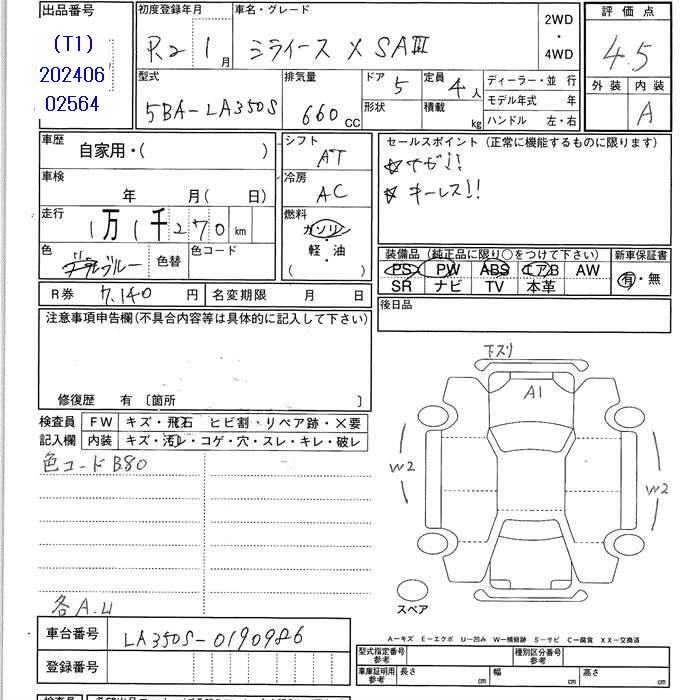 出品番号
(T1)
202406
02564
初度登録年月
R2 1月
車名・グレード
ミライース X SAⅢ
2WD
・
4WD
評価点
4.5
外装 内装
A
型式
5BA-LA350S
排気量
660 CC
ドア 5
形状
定員 4人
積載 kg
ディーラー・並行
モデル年式 年
ハンドル 左・右
車歴
自家用・( )
車検
年 月( 日)
走行
1万1千270 km
色
ブルー
色替
色コード
シフト
AT
冷房
AC
燃料
ガソリン
・
軽・油
( )
セールスポイント(正常に機能するものに限ります)
☆ナビ!!
☆キーレス!!
装備品(純正品に限り○をつけて下さい)
PS PW ABS エアB AW
SR ナビ TV 本革
新車保証書
有・無
後日品
R券 7,140 円
名変期限 月 日
注意事項申告欄(不具合内容等は具体的に記入して下さい)
修復歴 有 〔箇所 〕
検査員
記入欄
FW キズ・飛石 ヒビ割・リペア跡・×要
内装 キズ・汚レ・コゲ・穴・スレ・キレ・破レ
色コードB80
各A.U
下スリ
A1
W2
W2
スペア
車台番号 LA350S-0190986
登録番号
A-キズ E-エクボ U-凹み W-補修跡 S-サビ C-腐食 XX-交換済
型式指定番号
参考
種別区分番号
参考
車庫証明用
参考
長さ cm
幅 cm
高さ cm
検査員